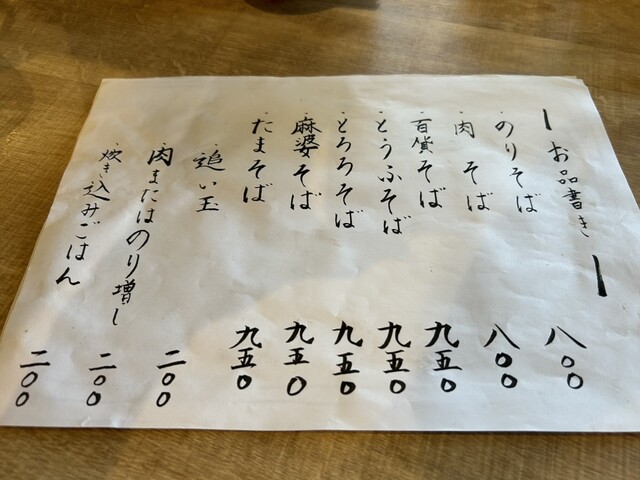 お品書き
・のりそば 八〇〇
・肉そば 八〇〇
・百貨そば 九五〇
・とうふそば 九五〇
・とろろそば 九五〇
・麻婆そば 九五〇
・たまそば 九五〇
・追い玉 二〇〇
・肉またはのり増し 二〇〇
・炊き込みごはん 二〇〇